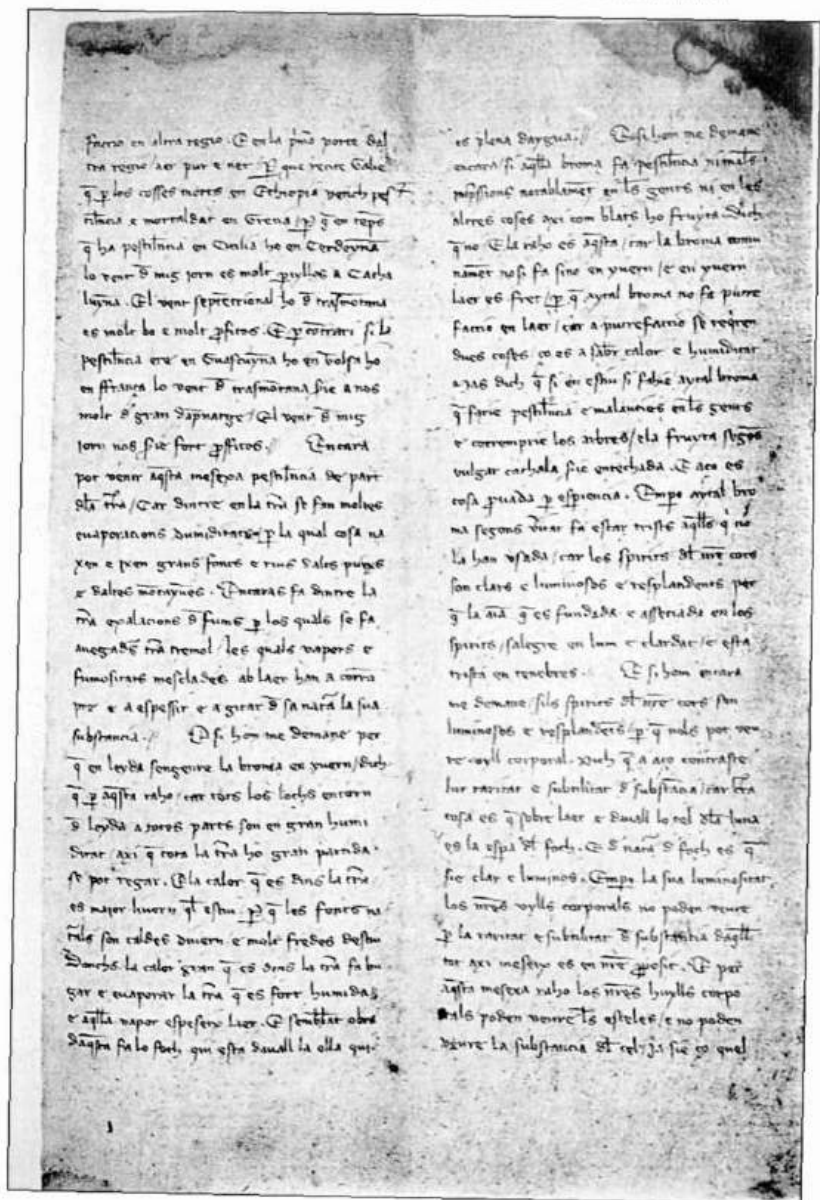 faccio en altra regio. E en la p̄mō porte dal
tra regio / aer pur e net. ꝑ que recite Galie
q̄ ꝑ los cossos morts en Ethiopia vench pes
tilēncia e mortaldat en Grecia / ꝑ q̄ en tēps
q̄ ha pestilēncia en Cicilia he en Cerdeyna
lo vent d̄ mig jorn es molt ꝑyllos a Catha
lunya. El vent septētrional ho d̄ trasmōtana
es molt bo e molt ꝓfitos. E ꝑ cōtrari si la
pestilēncia ere en Guascunya ho en Tolosa ho
en ffrança lo vent d̄ trasmōtana sie a nos
molt d̄ gran dāpnatge / El vent d̄ mig
jorn nos sie fort ꝓfitos. Encara
pot venir aq̄sta mesexa pestilēncia de part
dl̄a tr̄a / Car dintre en la tr̄a se fan moltes
evaporacions dumiditats ꝑ la qual cosa na
xen e ixen grans fonts e rius dalts puigs
e daltes mōtaynes. Encaras fa dintre la
tr̄a exalacions d̄ fums ꝑ los quals se fa
a vegads tr̄a tremol / les quals vapors e
fumositats mesclades ab laer han a corrō
pre e a espessir e a gitar d̄ sa nat̄a la sua
substancia. // E si hom me demane per
q̄ en leyda sengenre la broma en yvern / dich
q̄ ꝑ aq̄sta raho / car tots los lochs entorn
d̄ leyda a totes parts son en gran humi
ditat / axi q̄ tota la tr̄a ho gran partida
se pot regar. E la calor q̄ es dins la tr̄a
es major livern q̄l estiu. ꝑ q̄ les fonts na
tāls son caldes divern e molt fredes destiu
Donchs la calor gran q̄ es dins la tr̄a fa bu
gar e evaporar la tr̄a q̄ es fort humida
e aq̄lla vapor espeseix laer. E semblāt obra
daq̄sta fa lo foch qui esta davall la olla qui
es plena daygua. // E si hom me demane
encara / si aq̄lla broma fa pestilēncia ni mals
inpssions notablamēt en ls̄ gents ni en les
altres coses axi com blats ho fruyta. Dich
q̄ no. E la raho es aq̄sta / car la broma comu
namēt nos fa sino en yvern / e en yvern
laer es fret / ꝑ q̄ aytal broma no fa putre
faccio en laer / car a putrefaccio se req̄ren
dues coses ço es a sabr̄ calor e humiditat
Mas dich q̄ si en estiu si fahie aytal broma
q̄ farie pestilēncia e malauties en ls̄ gents
e corromprie los arbres / e la fruyta segōs
vulgar cathala sie entechada. E aço es
cosa ꝓvada ꝑ espiencia. Empo aytal bro
ma segons vitat fa estar trists aq̄lls q̄ no
la han usada / car los spirits dl̄ nr̄e cors
son clars e luminosos e resplandents per
q̄ la aīa q̄ es fundada e assetiada en los
spirits / salegre en lum e clardat / e esta
trista en tenebres. E si hom encara
me demane / sils spirits dl̄ nr̄e cors son
luminosos e resplandēts / ꝑ q̄ nols pot veu
re oyll corporal. Dich q̄ a aço contraste
lur raritat e subtilitat d̄ substācia / car cr̄ta
cosa es q̄ sobre laer e davall lo cel dl̄a luna
es la espa dl̄ foch. E d̄ nat̄a d̄ foch es q̄
sie clar e luminos. Empo la sua luminositat
los nr̄es uylls corporals no poden veure
ꝑ la raritat e subtilitat d̄ substantia daq̄ll
tot axi meseix es en nr̄e ꝓposit. E per
aq̄sta mesexa raho los nr̄es huylls corpo
rals poden veure ls̄ esteles / e no poden
veure la substancia dl̄ cel / ja sie ço quel